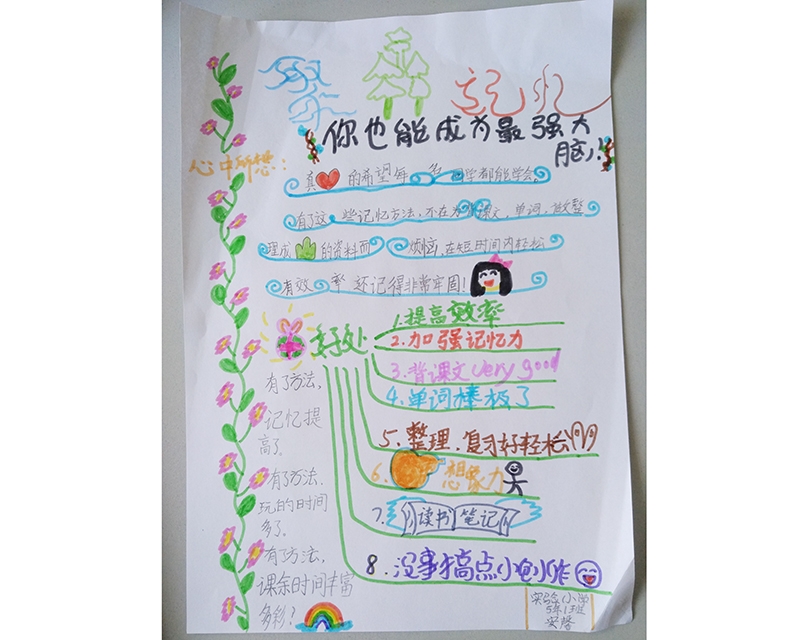 记忆
你也能成为最强大
脑!
心中所想:
真的希望每名同学都能学会。
有了这些记忆方法,不在为背课文,单词,做整
理成的资料而烦恼,在短时间内轻松
有效率还记得非常牢固!
好处
1.提高效率
2.加强记忆力
3.背课文very good
4.单词棒极了
5.整理.复习好轻松
6.想象力
7.读书笔记
8.没事搞点小创作
有了方法,
记忆提
高了。
有了方法,
玩的时间
多了。
有了方法,
课余时间丰富
多彩?
实验小学
5年1班